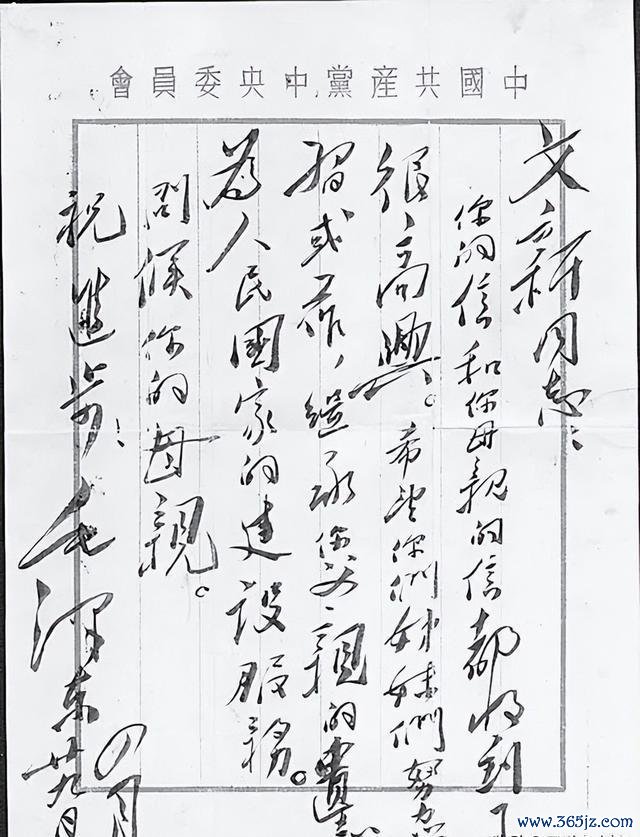 中國共産黨中央委員會
文新同志：
你的信和你母親的信都收到了
很高興。希望你們姊妹們努力
習或工作，繼承你父親的遺志
為人民國家的建設服務。
問候你的母親。
祝進步！毛澤東
四月
廿九日
www.365jz.com